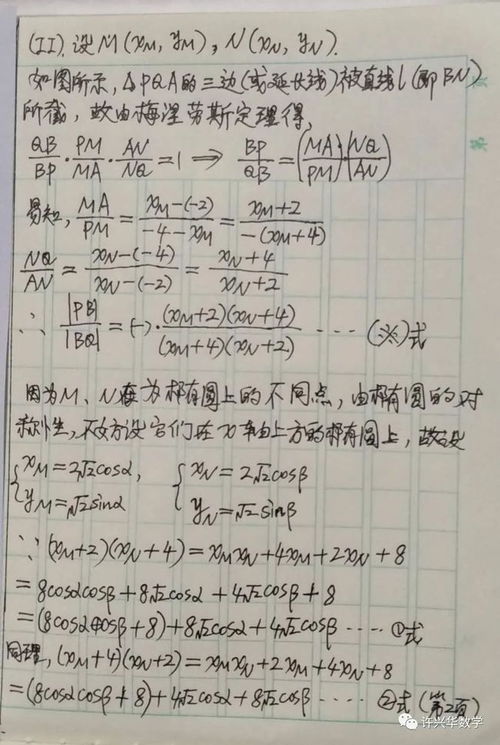 (II). 设M(x_M, y_M), N(x_N, y_N).
如图所示, △PQA的三边(或延长线)被直线l(即BN)
所截, 故由梅涅劳斯定理得,
QB/BP · PM/MA · AN/NQ = 1 ⇒ BP/QB = (MA/PM)·(NQ/AN)
易知, MA/PM = (x_M-(-2))/(-4-x_M) = (x_M+2)/(-(x_M+4))
NQ/AN = (x_N-(-4))/(x_N-(-2)) = (x_N+4)/(x_N+2)
∴ |PB|/|BQ| = (-)·((x_M+2)(x_N+4))/((x_M+4)(x_N+2)) ···· (※)式
因为M、N在为椭有圆上的不同点, 由椭有圆的对
称性, 不妨设它们在x轴上方的椭有圆上, 故设
{x_M=2√2cosα, {x_N=2√2cosβ
y_M=√2sinα y_N=√2sinβ
∵ (x_M+2)(x_N+4) = x_Mx_N+4x_M+2x_N+8
= 8cosαcosβ+8√2cosα+4√2cosβ+8
= (8cosαcosβ+8)+8√2cosα+4√2cosβ ···· ①式
同理, (x_M+4)(x_N+2) = x_Mx_N+2x_M+4x_N+8
= (8cosαcosβ+8)+4√2cosα+8√2cosβ ····· ②式 (第2页)
许兴华数学